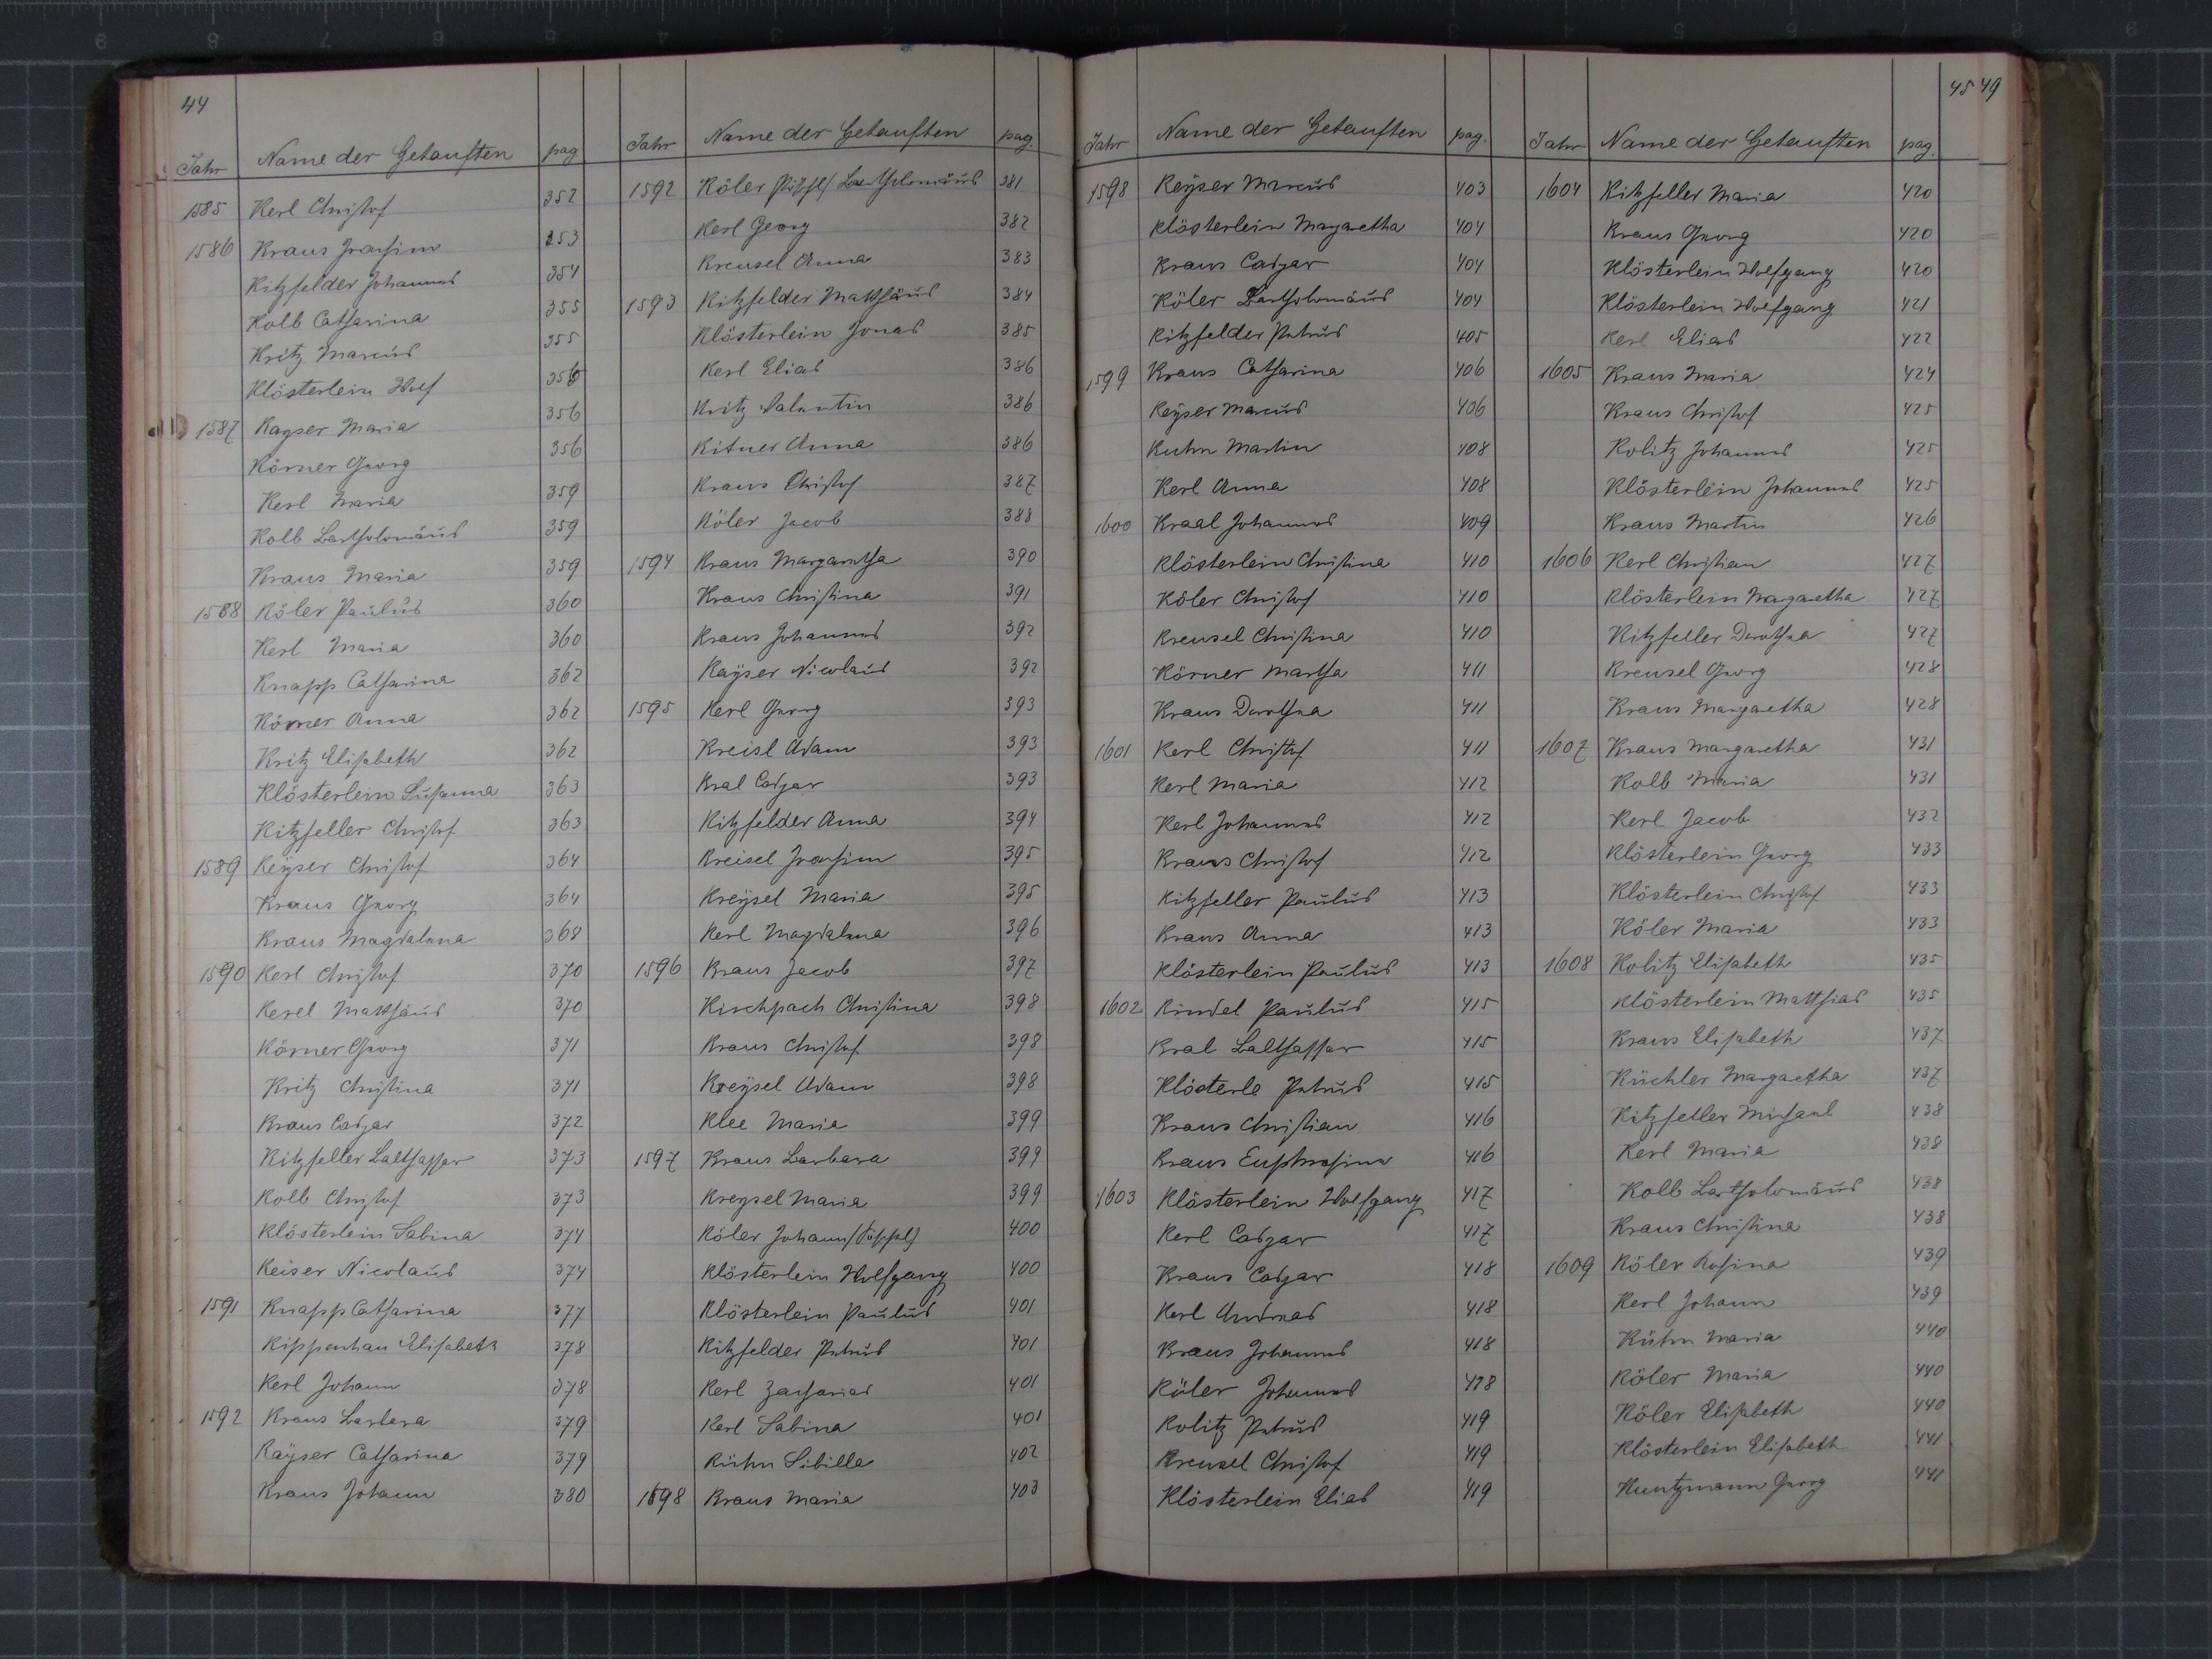 44
Jahr Name der Getauften pag.
1585 Kerl Christof 352
1586 Kraus Joachim 353
Kitzfelder Johannes 354
Kolb Catharina 355
Kritz Marcus 355
Klösterlein Wolf 356
1587 Kayser Maria 356
Körner Georg 356
Kerl Maria 359
Kolb Bartholomäus 359
Kraus Maria 359
1588 Köler Paulus 360
Kerl Maria 360
Knapp Catharina 362
Körner Anna 362
Kritz Elisabeth 362
Klösterlein Susanna 363
Kitzfeller Christof 363
1589 Keÿser Christof 364
Kraus Georg 364
Kraus Magdalena 368
1590 Kerl Christof 370
Kerel Matthäus 370
Körner Georg 371
Kritz Christina 371
Kraus Caspar 372
Kitzfeller Balthasser 373
Kolb Christof 373
Klösterlein Sabina 374
Keiser Nicolaus 374
1591 Knapp Catharina 377
Kippenhan Elisabeth 378
Kerl Johann 378
1592 Kraus Barbara 379
Kaÿser Catharina 379
Kraus Johann 380
Jahr Name der Getauften pag.
1592 Köler Bartholomäus 381
Kerl Georg 382
Kreusel Anna 383
1593 Kitzfelder Matthäus 384
Klösterlein Jonas 385
Kerl Elias 386
Kritz Valentin 386
Kitner Anna 386
Kraus Christof 387
Köler Jacob 388
1594 Kraus Margaretha 390
Kraus Christina 391
Kraus Johannes 392
Kaÿser Nicolaus 392
1595 Kerl Georg 393
Kreisl Adam 393
Kral Caspar 393
Kitzfelder Anna 394
Kreisel Joachim 395
Kreÿsel Maria 395
Kerl Magdalena 396
1596 Kraus Jacob 397
Kirchpach Christina 398
Kraus Christof 398
Kreÿsel Adam 398
Klee Maria 399
1597 Kraus Barbara 399
Kreysel Maria 399
Köler Johann 400
Klösterlein Wolfgang 400
Klösterlein Paulus 401
Kitzfelder Petrus 401
Kerl Zacharias 401
Kerl Sabina 401
Kühn Sibilla 402
1598 Kraus Maria 403
45 49
Jahr Name der Getauften pag.
1598 Keÿser Marcus 403
Klösterlein Margaretha 404
Kraus Caspar 404
Köler Bartholomäus 404
Kitzfelder Petrus 405
1599 Kraus Catharina 406
Keÿser Marcus 406
Kuhn Martin 408
Kerl Anna 408
1600 Kraal Johannes 409
Klösterlein Christina 410
Köler Christof 410
Kreusel Christina 410
Körner Martha 411
Kraus Dorothea 411
1601 Kerl Christof 411
Kerl Maria 412
Kerl Johannes 412
Kraus Christof 412
Kitzfeller Paulus 413
Kraus Anna 413
Klösterlein Paulus 413
1602 Kindel Paulus 415
Kral Balthassar 415
Klösterle Petrus 415
Kraus Christian 416
Kraus Euphrosina 416
1603 Klösterlein Wolfgang 417
Kerl Caspar 417
Kraus Caspar 418
Kerl Andreas 418
Kraus Johannes 418
Köler Johannes 418
Kolitz Petrus 419
Kreusel Christof 419
Klösterlein Elias 419
Jahr Name der Getauften pag.
1604 Kitzfeller Maria 420
Kraus Georg 420
Klösterlein Wolfgang 420
Klösterlein Wolfgang 421
Kerl Elias 422
1605 Kraus Maria 424
Kraus Christof 425
Kolitz Johannes 425
Klösterlein Johannes 425
Kraus Martin 426
1606 Kerl Christian 427
Klösterlein Margaretha 427
Kitzfeller Dorothea 427
Kreusel Georg 428
Kraus Margaretha 428
1607 Kraus Margaretha 431
Kolb Maria 431
Kerl Jacob 432
Klösterlein Georg 433
Klösterlein Christof 433
Köler Maria 433
1608 Kolitz Elisabeth 435
Klösterlein Matthias 435
Kraus Elisabeth 437
Küchler Margaretha 437
Kitzfeller Michael 438
Kerl Maria 438
Kolb Bartholomäus 438
Kraus Christina 438
1609 Köler Rosina 439
Kerl Johann 439
Kühn Maria 440
Köler Maria 440
Köler Elisabeth 440
Klösterlein Elisabeth 441
Kuntzmann Georg 441